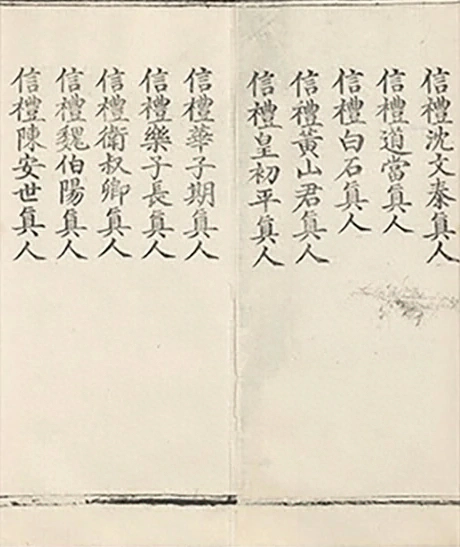 信禮沈文秦真人
信禮道當真人
信禮白石真人
信禮黃山君真人
信禮皇初平真人
信禮華子期真人
信禮樂子長真人
信禮衛叔卿真人
信禮魏伯陽真人
信禮陳安世真人